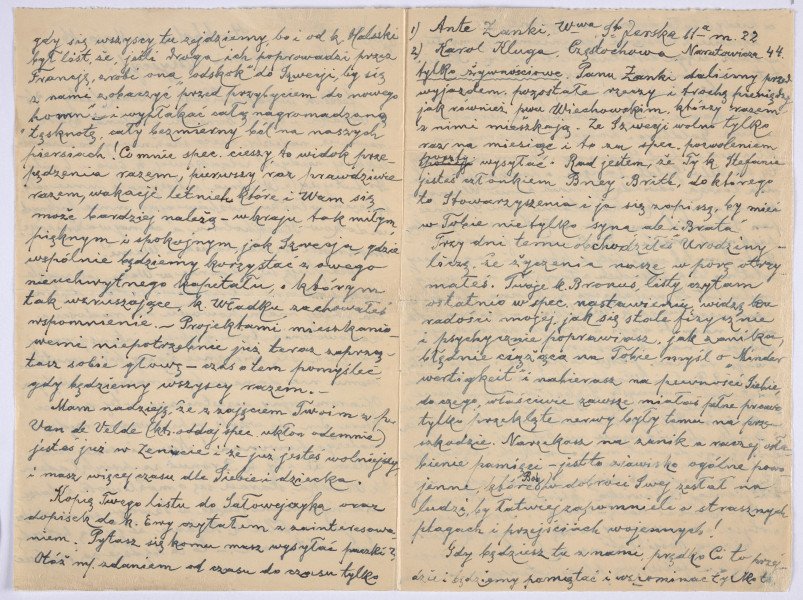 gdy się wszyscy tu zejdziemy, bo i od k. Haluski
był list, że, jeśli droga ich poprowadzi przez
Francję, zrobi ona "odskok" do Szwecji, by się
z nami zobaczyć przed przybyciem do nowego
"home" i wypłakać całą nagromadzoną
tęsknotę, cały bezmierny ból na naszych
piersiach! Co mnie spec. cieszy, to widok prze-
pędzenia razem, pierwszy raz prawdziwie
razem, wakacji letnich, które i Wam się
może bardziej należą – w kraju tak miłym
pięknym i spokojnym jak Szwecja, gdzie
wspólnie będziemy korzystać z owego
nieuchwytnego kapitału, o którym
tak wzruszające, k. Władku zachowałeś
wspomnienie. – Projektami mieszkanio-
wemi niepotrzebnie już teraz zaprzą-
tasz sobie głowę – czas o tem pomyśleć
gdy będziemy wszyscy razem. –
Mam nadzieję, że z zajęciem Twoim w p.
Van de Velde (kt. oddaj spec. ukłon odemnie)
jesteś już w żeniacie i że już jesteś wolniejszy
i masz więcej czasu dla Siebie i dziecka.
Kopię Twego listu do Satowejczyka oraz
dopisek do k. Ewy czytałem z zainteresowa-
niem. Pytasz się komu masz wysyłać paczki?
Otóż m/ zdaniem od czasu do czasu tylko
1) Ante Zanki, W-wa Ząbkowska 11a m. 22
2) Karol Kluga, Częstochowa Narutowicza 44.
tylko żywnościowe. Panu Zanki daliśmy przed
wyjazdem pozostałe rzeczy i trochę pieniędzy
jak również pwu Wiechowskim, którzy razem
z nimi mieszkają. Ze Szwecji wolno tylko
raz na miesiąc i to za spec. pozwoleniem
wysyłać. Rad jestem, że Ty k. Stefanie
jesteś członkiem Bney Brith, do którego
to Stowarzyszenia i ja się zapiszę, by mieć
w Tobie nie tylko syna ale i Brata
Trzy dni temu obchodziłeś Urodziny –
liczę, że życzenia nasze w porę otrzy
małeś. Twoje k. Bronus, listy czytam
ostatnio w spec. nastawieniu, widzę ku
radości mojej jak się stale fizycznie
i psychicznie poprawiasz, jak zanika,
błędnie ciążąca na Tobie myśl o "Minder
wertigkeit" i nabierasz na pewności Siebie,
do czego, właściwie zawsze miałaś pełne prawo
tylko przeklęte nerwy były temu na prze-
szkodzie. Narzekasz na zanik a raczej osła-
bienie pamięci – jest to zjawisko ogólne powo
jenne, które Bóg w dobroci Swej zesłał na
ludzi, by łatwiej zapomnieli o strasznych
plagach i przejściach wojennych!
Gdy będziesz tu z nami, prędko Ci to przej-
dzie i będziemy pamiętać i wspominać tylko to